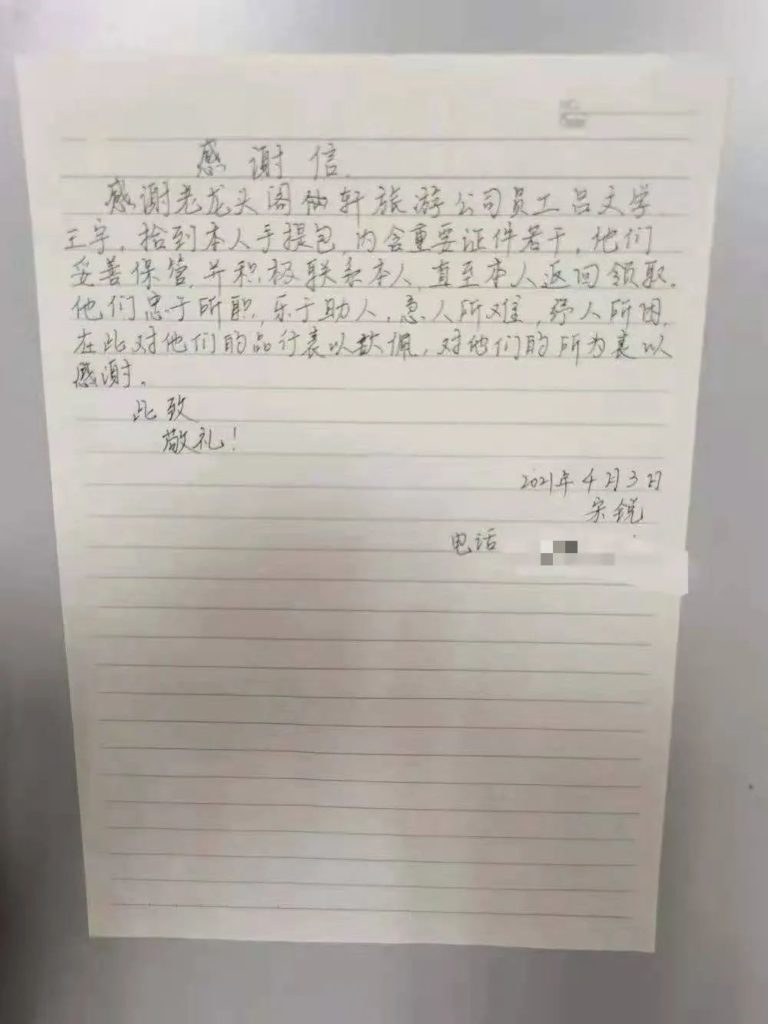 感谢信.
感谢老龙头阁仙轩旅游公司员工吕文学
王宇,拾到本人手提包,内含重要证件若干,他们
妥善保管,并积极联系本人,直至本人返回领取.
他们忠于所职,乐于助人,急人所难,纾人所困,
在此对他们的品行表以钦佩,对他们的所为表以
感谢。
此致
敬礼!
2021年4月3日
宋锐
电话